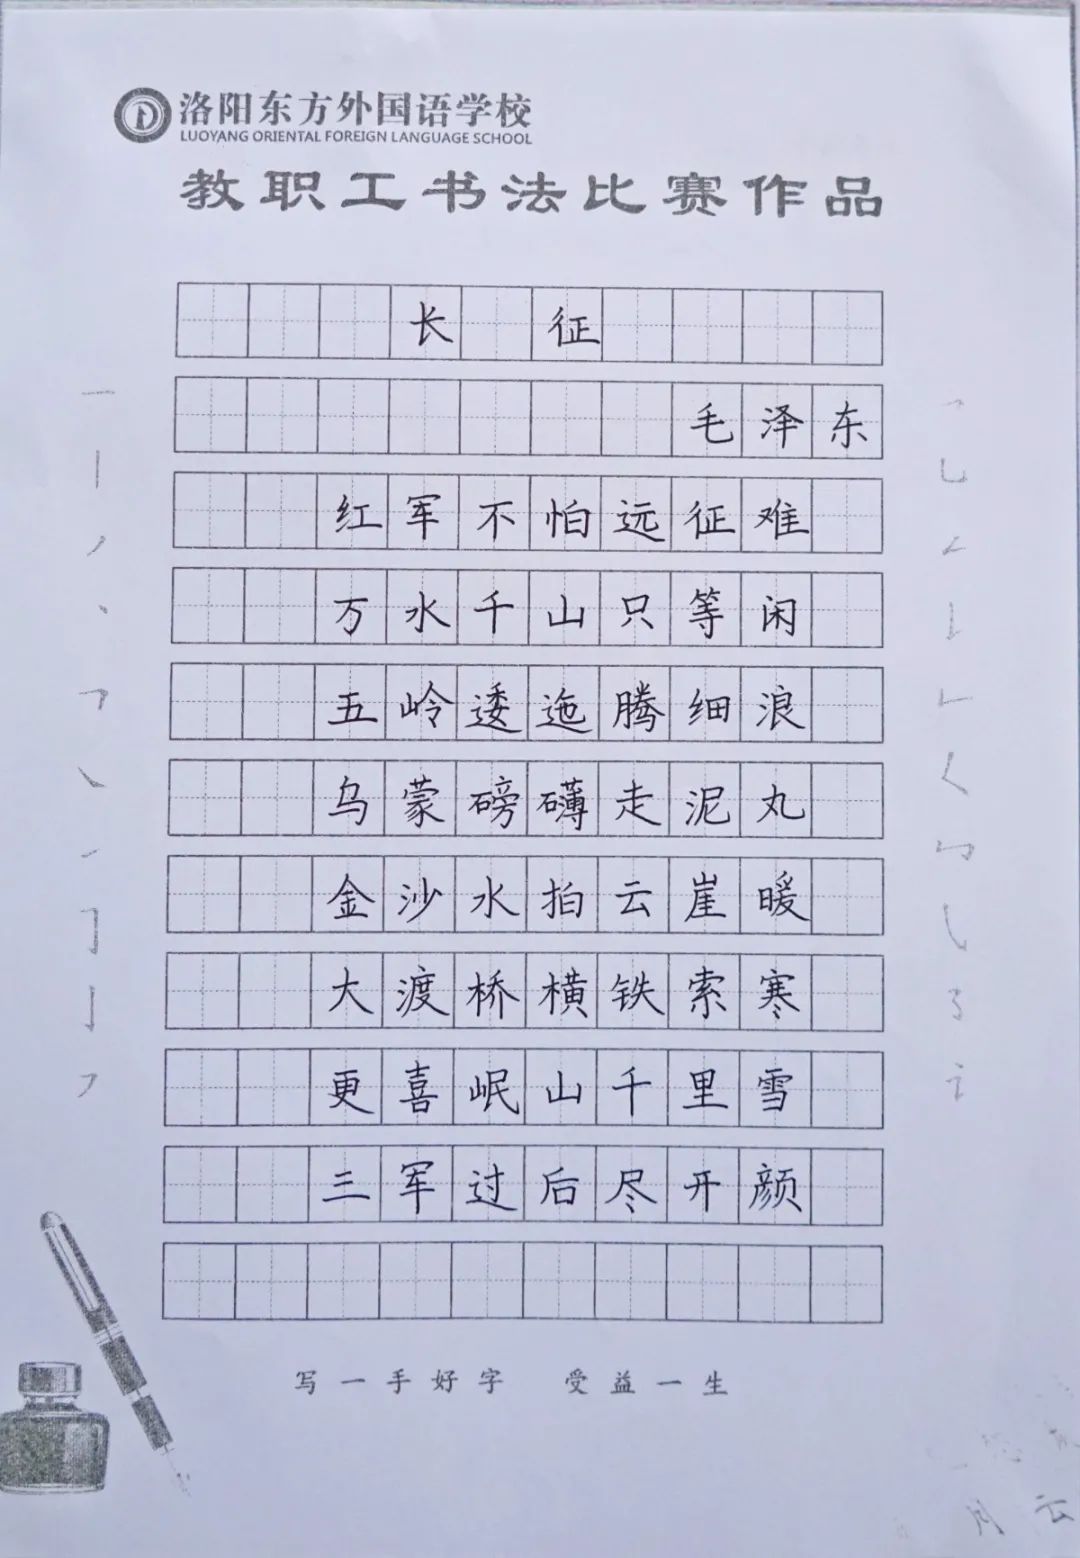 洛阳东方外国语学校
LUOYANG ORIENTAL FOREIGN LANGUAGE SCHOOL
教职工书法比赛作品
长征
毛泽东
红军不怕远征难
万水千山只等闲
五岭逶迤腾细浪
乌蒙磅礴走泥丸
金沙水拍云崖暖
大渡桥横铁索寒
更喜岷山千里雪
三军过后尽开颜
写一手好字 受益一生
月云